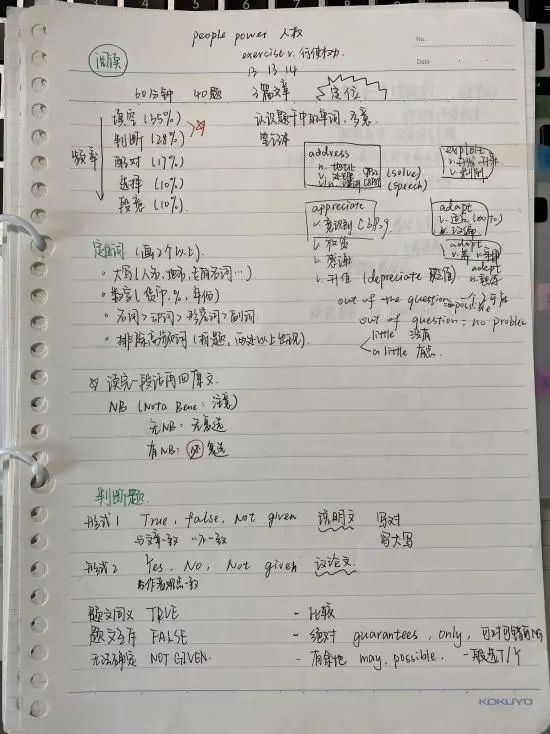 people power 人权
No.
阅读
exercise v. 行使权力
Date
13 13 14
60分钟 40题 3篇文章 定位
频率
填空 (35%)
判断 (28%)
配对 (17%)
选择 (10%)
段意 (10%)
认识题干中的单词,多意
笔记本
address
n. 地址
v. 处理 (solve)
v./n. 演讲 (speech)
exploit
v. 开发
appreciate
v. 意识到 C6 8.9
v. 欣赏
v. 感谢
v. 升值 (depreciate 贬值)
adapt
v. 适应
v. 改编
adopt
adept
定位词 (画2个以上)
· 大写 (人名, 地名, 专有名词…)
· 数字 (货币, %, 年份)
· 名词>动词>形容词>副词
· 排除高频词 (标题, 两处以上出现)
out of the question = 不可能
out of question = no problem
little 没有
a little 有点
读完一段话再回原文
NB (Nota Bene: 注意)
无NB: 无复选
有NB: 必复选
判断题
形式1 True, false, Not given 说明文 写对
与文章一致 不一致 写大写
形式2 Yes, No, Not given 议论文
与作者观点一致
题文同义 TRUE - 比较
题文互斥 FALSE - 绝对 guarantees, only, 可对可错可NG
无法确定 NOT GIVEN. - 有余地 may, possible. 一般选T/Y
KOKUYO